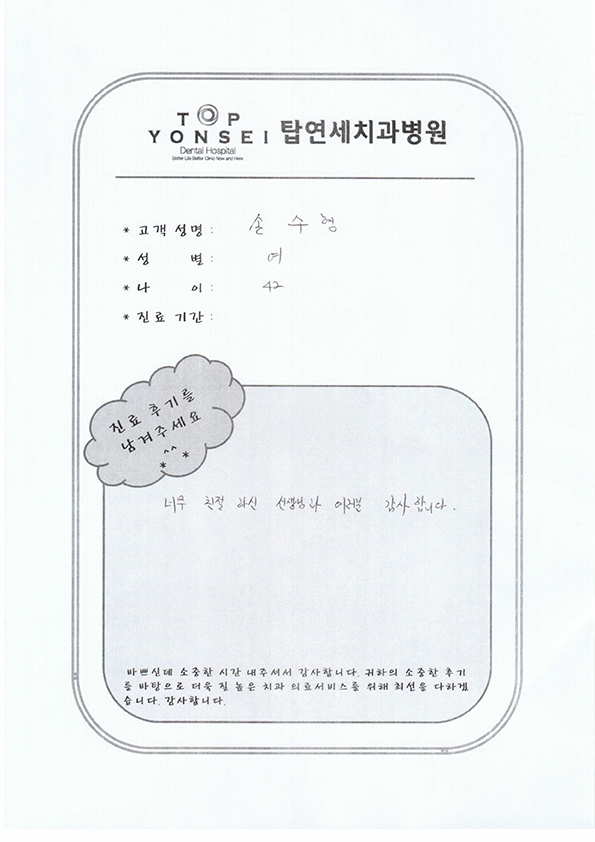 TOP
YONSEI 탑연세치과병원
Dental Hospital
Better Life Better Clinic Now and Here
* 고객 성명 : 손 수형
* 성 별 : 여
* 나 이 : 42
* 진료 기간 :
진료 후기를
남겨주세요
^^
* *
너무 친절 하신 선생님과 여러분 감사합니다.
바쁘신데 소중한 시간 내주셔서 감사합니다. 귀하의 소중한 후기
를 바탕으로 더욱 질 높은 치과 의료서비스를 위해 최선을 다하겠
습니다. 감사합니다.